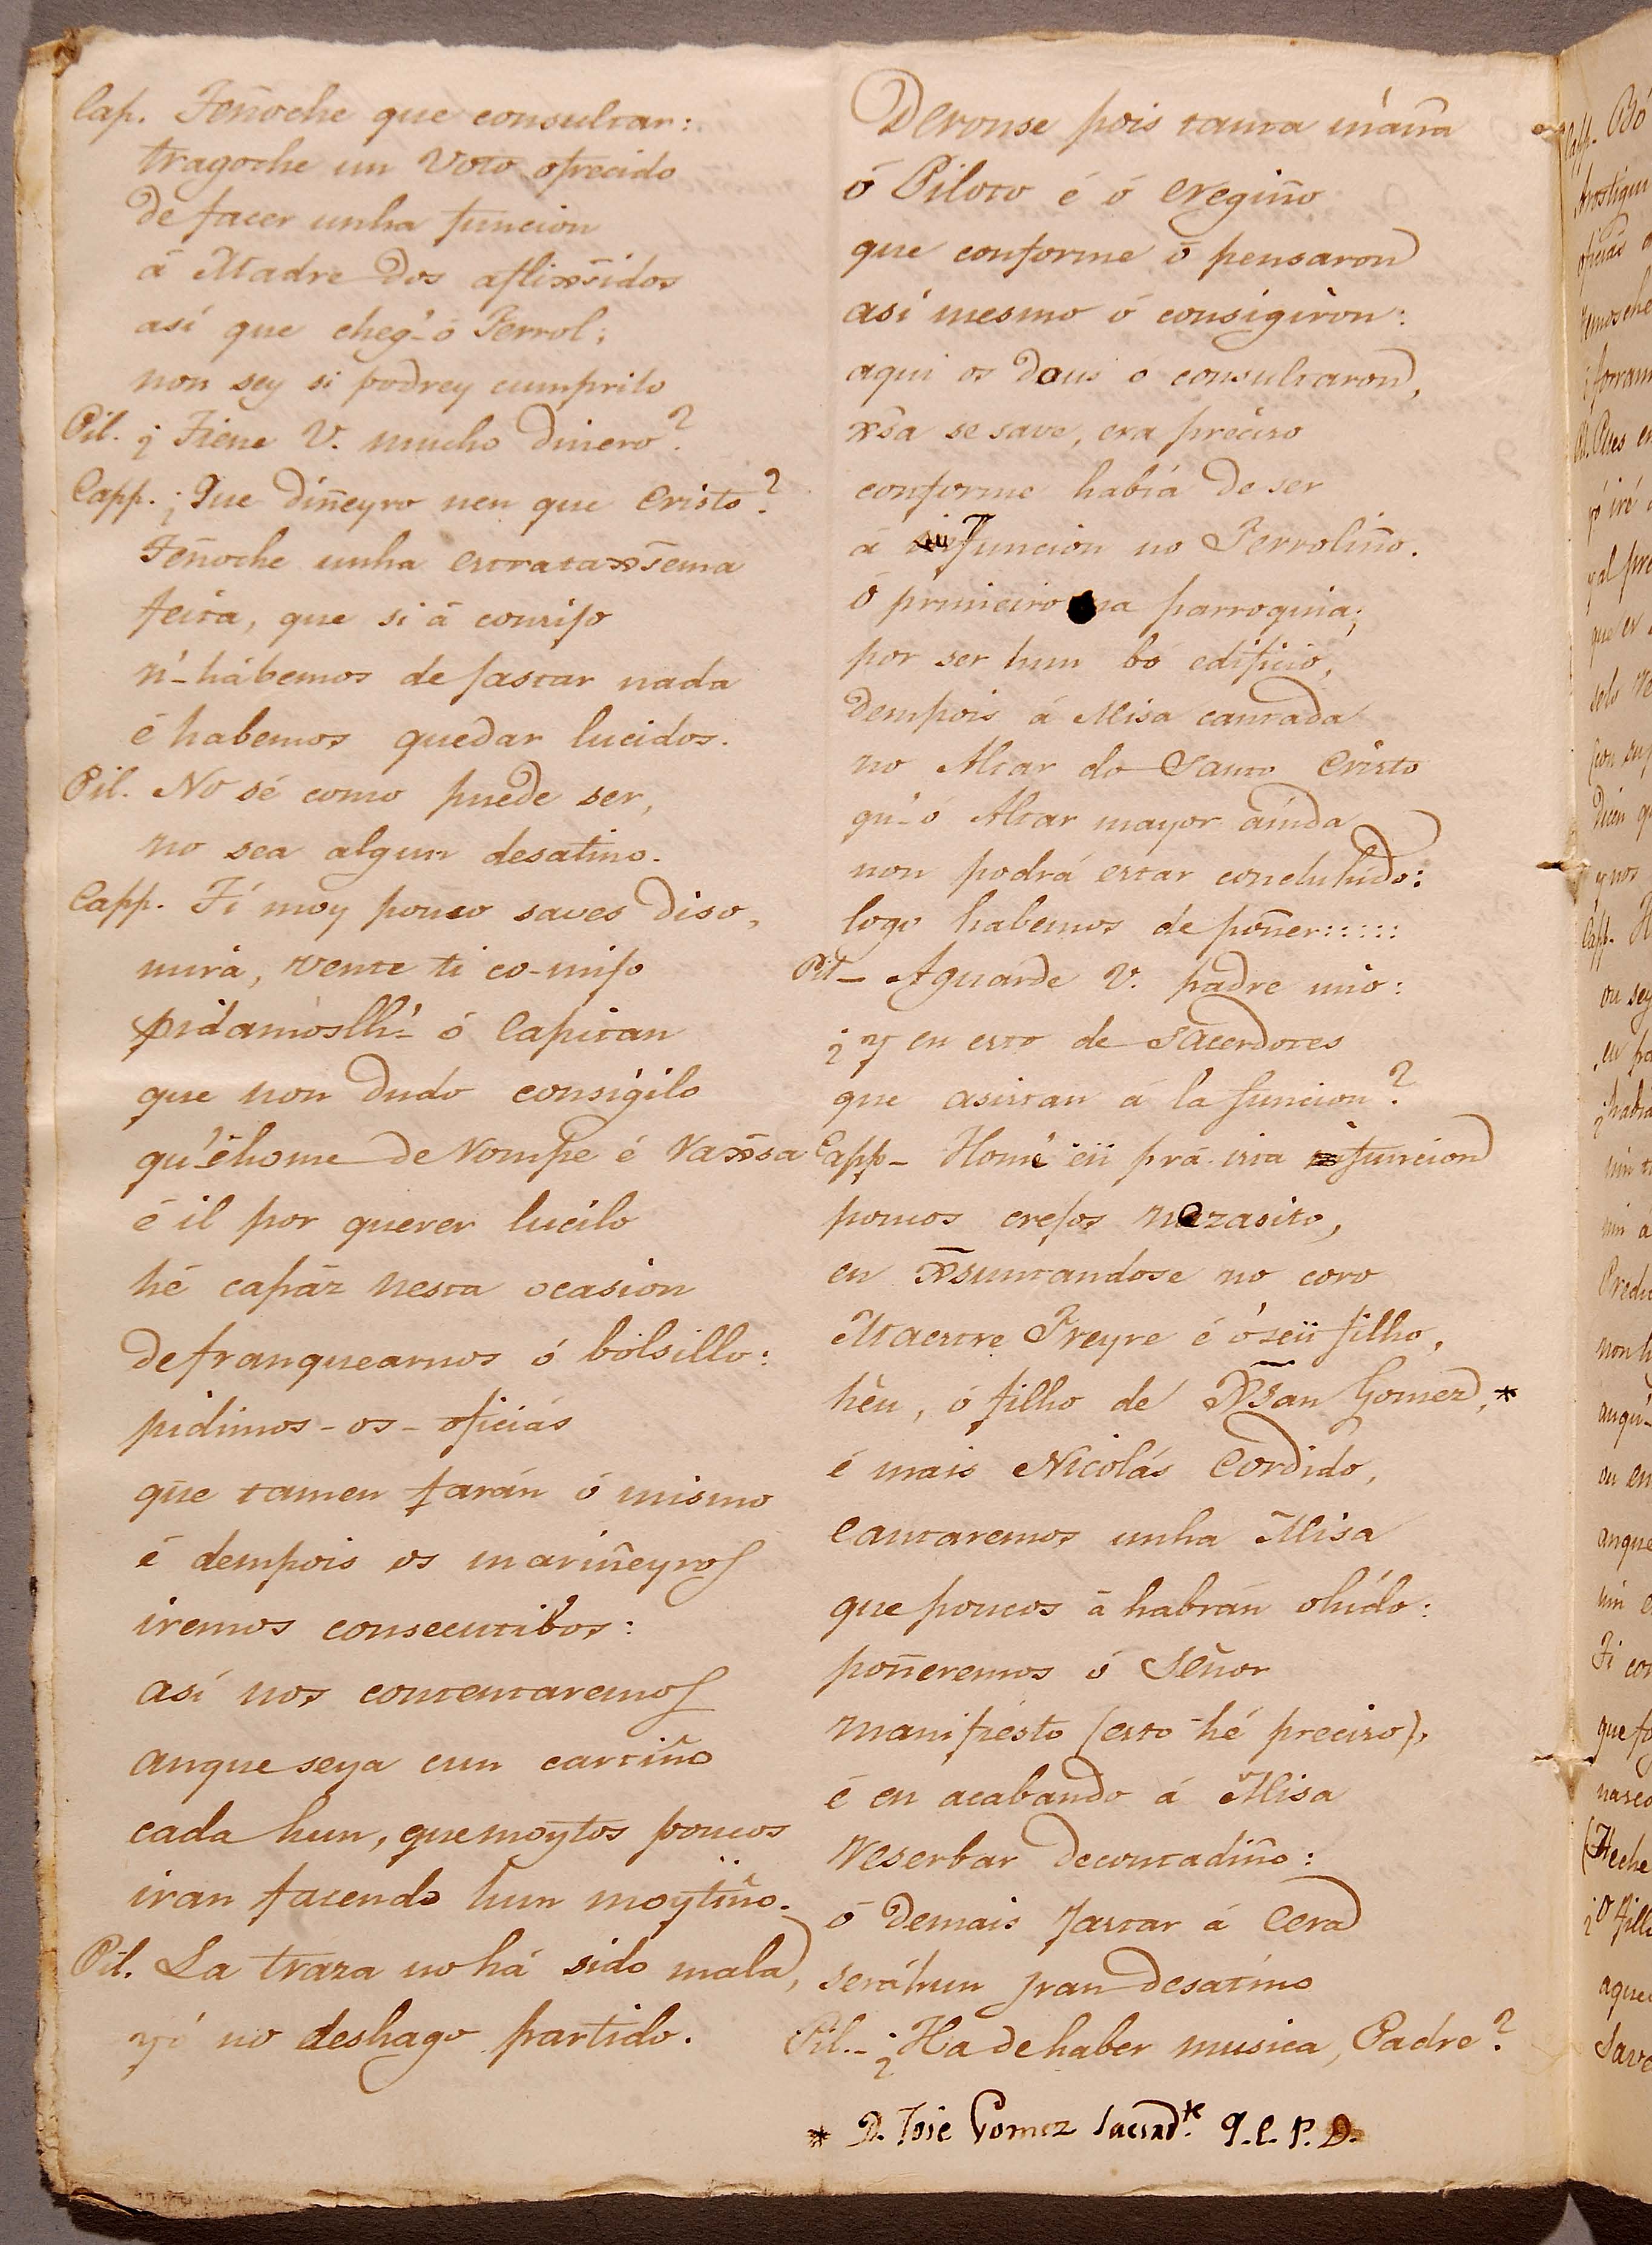 Cap. Teñoche que consultar:
tragoche un Voto ofrecido
de facer unha funcion
â Madre dos aflixsidos
así que cheg'-ô Ferrol;
non sey si podrey cumprilo
Pil. ¿ Tiene V. mucho dinero?
Capp. ¿Que diñeyro nen que Cristo?
Teñoche unha estrataxsema
feita, que si â consifo
n'-hábemos de fastar nada
ê habemos quedar lucidos.
Pil. No sé como puede ser,
no sea algun desatino.
Capp. Tí moy pouco saves diso,
mira, vente ti co-mifo
pidamoslh'- ó Capitan
que non dudo consígilo
qu'êhome de Nompe é Vaxsa
ê il por querer lucilo
hé capáz nesta ocasion
de franquearnos ó bolsillo:
pidimos-os-oficiás
que tamen farán ó mismo
ê dempois os mariñeyros
iremos consecutibos:
así nos contentaremos
anque seya cun cartiño
cada hun, que moytos poucos
iran facendo hun moytiño.
Pil. La traza no há sido mala,
yó no deshago partido.
Deronse pois tanta máña
ó Piloto é ó Cregiño
que conforme ô pensaron
así mesmo ó consigiron:
aqui os dous ó consultaron,
xsa se save, era preciso
conforme habiá de ser
á funcion no Ferroliño.
Ô primeiro na parroquia;
por ser hum bó edificio,
dempois á Misa cantada
no Altar do Santo Cristo
qu'-ó Altar mayor aínda
non podrá estar concluhido:
logo habemos de poñer::::::
Pil- Aguarde V. padre mio:
¿ y en esto de Sacerdotes
que asistan á la funcion?
Capp- Home' eü prá ista funcion
poucos crefos nezasito,
en xsuntandose no coro
Maestre Freyre é ó seü filho,
hèu, ó filho de Xsan Gomez, *
é mais Nicolás Cordido,
Cantaremos unha Misa
que poucos â habrán ohído:
poñeremos ó Señor
manifiésto (esto hé preciso),
é en acabando á Misa
Reserbar decontadiño:
ó demais fastar á Cera
será hun fran desatino
Pil.- ¿Ha de haber musica, Padre?
* D. Jose Gomez Sacerd.te q.e.P.D.